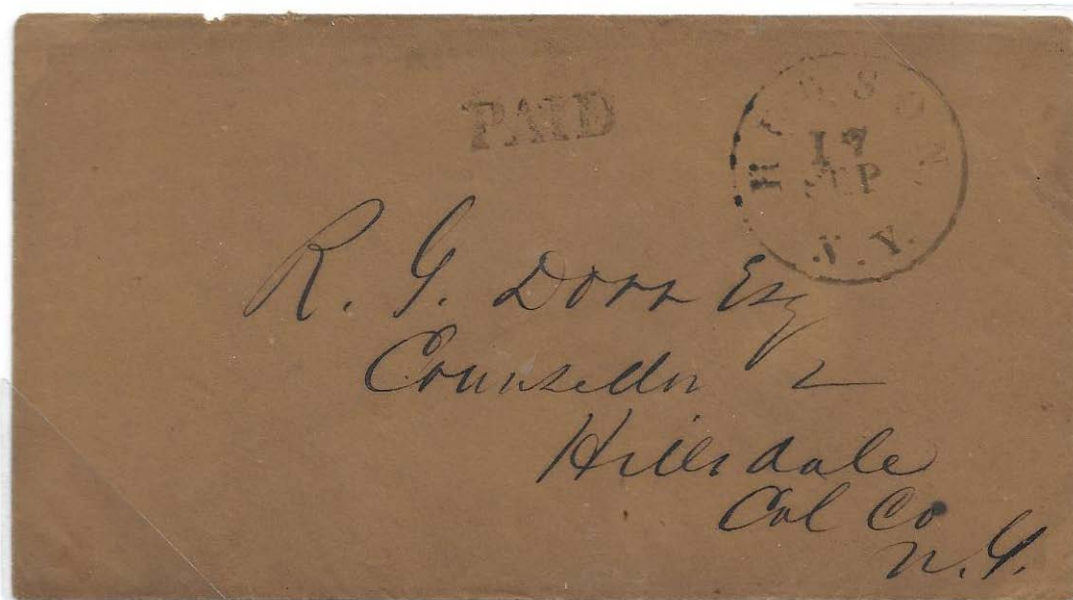 PAID
HUDSON
17
SEP
N.Y.
R. G. Dorr Esq
Counsellor
Hillsdale
Col Co
N.Y.